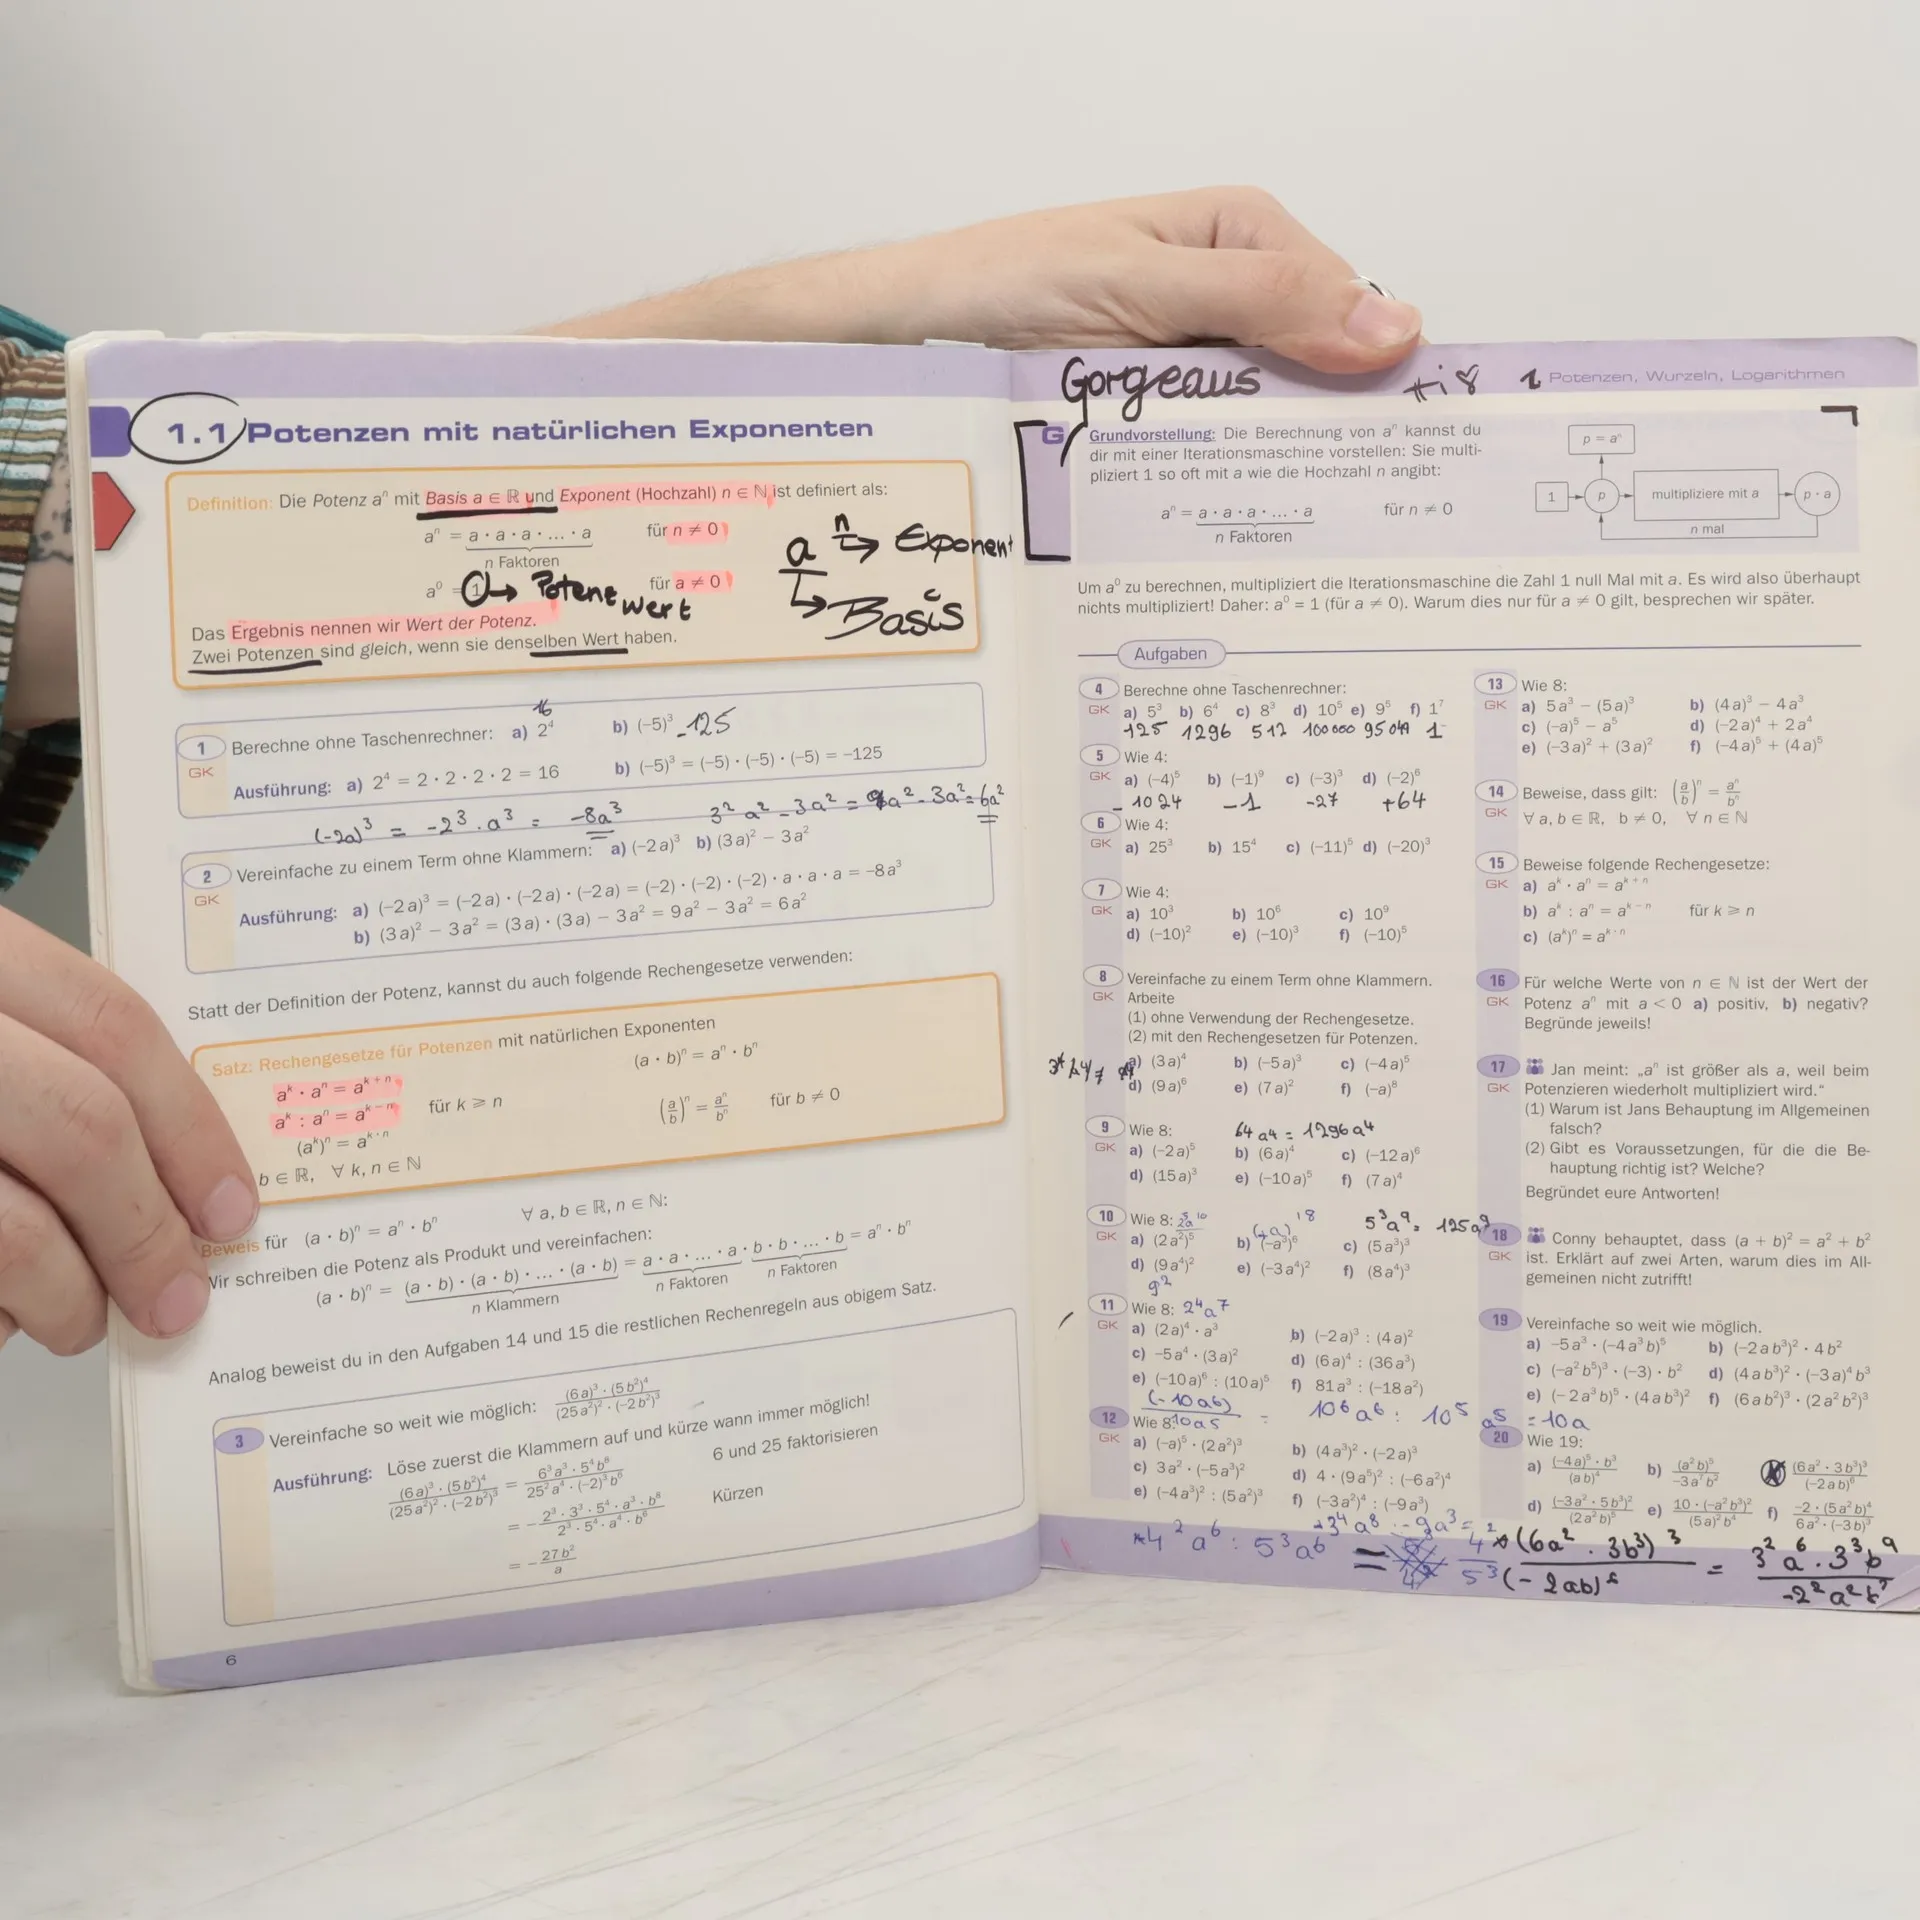 1.1 Potenzen mit natürlichen Exponenten
Definition: Die Potenz aⁿ mit Basis a ∈ ℝ und Exponent (Hochzahl) n ∈ ℕ ist definiert als:
aⁿ = a · a · a · … · a für n ≠ 0
n Faktoren
a⁰ = 1 → Potenz wert für a ≠ 0
n → Exponent
a
→ Basis
Das Ergebnis nennen wir Wert der Potenz.
Zwei Potenzen sind gleich, wenn sie denselben Wert haben.
16
1 Berechne ohne Taschenrechner: a) 2⁴ b) (−5)³ -125
GK
Ausführung: a) 2⁴ = 2 · 2 · 2 · 2 = 16 b) (−5)³ = (−5) · (−5) · (−5) = −125
(-2a)³ = -2³ · a³ = -8a³ 3² a² - 3a² = 9a² - 3a² = 6a²
2 Vereinfache zu einem Term ohne Klammern: a) (−2a)³ b) (3a)² − 3a²
GK
Ausführung: a) (−2a)³ = (−2a) · (−2a) · (−2a) = (−2) · (−2) · (−2) · a · a · a = −8a³
b) (3a)² − 3a² = (3a) · (3a) − 3a² = 9a² − 3a² = 6a²
Statt der Definition der Potenz, kannst du auch folgende Rechengesetze verwenden:
Satz: Rechengesetze für Potenzen mit natürlichen Exponenten
aᵏ · aⁿ = aᵏ⁺ⁿ (a · b)ⁿ = aⁿ · bⁿ
aᵏ : aⁿ = aᵏ⁻ⁿ für k ⩾ n (a/b)ⁿ = aⁿ/bⁿ für b ≠ 0
(aᵏ)ⁿ = aᵏ·ⁿ
b ∈ ℝ, ∀ k, n ∈ ℕ
Beweis für (a · b)ⁿ = aⁿ · bⁿ ∀ a, b ∈ ℝ, n ∈ ℕ:
Wir schreiben die Potenz als Produkt und vereinfachen:
(a · b)ⁿ = (a · b) · (a · b) · … · (a · b) = a · a · … · a · b · b · … · b = aⁿ · bⁿ
n Klammern n Faktoren n Faktoren
Analog beweist du in den Aufgaben 14 und 15 die restlichen Rechenregeln aus obigem Satz.
3 Vereinfache so weit wie möglich: (6a)³ · (5b²)⁴ / (25a²)² · (−2b²)³
Ausführung: Löse zuerst die Klammern auf und kürze wann immer möglich!
(6a)³ · (5b²)⁴ / (25a²)² · (−2b²)³ = 6³a³ · 5⁴b⁸ / 25²a⁴ · (−2)³b⁶ 6 und 25 faktorisieren
= − 2³ · 3³ · 5⁴ · a³ · b⁸ / 2³ · 5⁴ · a⁴ · b⁶ Kürzen
= − 27b²/a
6
Gorgeaus
1 Potenzen, Wurzeln, Logarithmen
G Grundvorstellung: Die Berechnung von aⁿ kannst du
dir mit einer Iterationsmaschine vorstellen: Sie multi-
pliziert 1 so oft mit a wie die Hochzahl n angibt:
aⁿ = a · a · a · … · a für n ≠ 0
n Faktoren
p = aⁿ
1 p multipliziere mit a p · a
n mal
Um a⁰ zu berechnen, multipliziert die Iterationsmaschine die Zahl 1 null Mal mit a. Es wird also überhaupt
nichts multipliziert! Daher: a⁰ = 1 (für a ≠ 0). Warum dies nur für a ≠ 0 gilt, besprechen wir später.
Aufgaben
4 Berechne ohne Taschenrechner:
GK a) 5³ b) 6⁴ c) 8³ d) 10⁵ e) 9⁵ f) 1⁷
125 1296 512 100000 95049 1
5 Wie 4:
GK a) (−4)⁵ b) (−1)⁹ c) (−3)³ d) (−2)⁶
-1024 -1 -27 +64
6 Wie 4:
GK a) 25³ b) 15⁴ c) (−11)⁵ d) (−20)³
7 Wie 4:
GK a) 10³ b) 10⁶ c) 10⁹
d) (−10)² e) (−10)³ f) (−10)⁵
8 Vereinfache zu einem Term ohne Klammern.
GK Arbeite
(1) ohne Verwendung der Rechengesetze.
(2) mit den Rechengesetzen für Potenzen.
a) (3a)⁴ b) (−5a)³ c) (−4a)⁵
d) (9a)⁶ e) (7a)² f) (−a)⁸
9 Wie 8: 64a4 = 1296a4
GK a) (−2a)⁵ b) (6a)⁴ c) (−12a)⁶
d) (15a)³ e) (−10a)⁵ f) (7a)⁴
10 Wie 8: 5³a⁹ = 125a⁹
GK a) (2a²)⁵ b) (−a³)⁶ c) (5a³)³
d) (9a⁴)² e) (−3a⁴)² f) (8a⁴)³
9²
11 Wie 8: 2⁴a⁷
GK a) (2a)⁴ · a³ b) (−2a)³ : (4a)²
c) −5a⁴ · (3a)² d) (6a)⁴ : (36a³)
e) (−10a)⁶ : (10a)⁵ f) 81a³ : (−18a²)
(-10a6) / 10a5 = 10⁶a⁶ : 10⁵ a⁵ = 10a
12 Wie 8:
GK a) (−a)⁵ · (2a²)³ b) (4a³)² · (−2a)³
c) 3a² · (−5a³)² d) 4 · (9a⁵)² : (−6a²)⁴
e) (−4a³)² : (5a²)³ f) (−3a²)⁴ : (−9a³)
+3⁴a⁸ : -9a³ =
*4²a⁶ : 5³a6 = 4²/5³
13 Wie 8:
GK a) 5a³ − (5a)³ b) (4a)³ − 4a³
c) (−a)⁵ − a⁵ d) (−2a)⁴ + 2a⁴
e) (−3a)² + (3a)² f) (−4a)⁵ + (4a)⁵
14 Beweise, dass gilt: (a/b)ⁿ = aⁿ/bⁿ
GK ∀ a, b ∈ ℝ, b ≠ 0, ∀ n ∈ ℕ
15 Beweise folgende Rechengesetze:
GK a) aᵏ · aⁿ = aᵏ⁺ⁿ
b) aᵏ : aⁿ = aᵏ⁻ⁿ für k ⩾ n
c) (aᵏ)ⁿ = aᵏ·ⁿ
16 Für welche Werte von n ∈ ℕ ist der Wert der
GK Potenz aⁿ mit a < 0 a) positiv, b) negativ?
Begründe jeweils!
17 Jan meint: „aⁿ ist größer als a, weil beim
GK Potenzieren wiederholt multipliziert wird.“
(1) Warum ist Jans Behauptung im Allgemeinen
falsch?
(2) Gibt es Voraussetzungen, für die die Be-
hauptung richtig ist? Welche?
Begründet eure Antworten!
18 Conny behauptet, dass (a + b)² = a² + b²
GK ist. Erklärt auf zwei Arten, warum dies im All-
gemeinen nicht zutrifft!
19 Vereinfache so weit wie möglich.
a) −5a³ · (−4a³b)⁵ b) (−2ab³)² · 4b²
c) (−a²b⁵)³ · (−3) · b² d) (4ab³)² · (−3a)⁴b³
e) (−2a³b)⁵ · (4ab³)² f) (6ab²)³ · (2a²b²)³
20 Wie 19:
a) (−4a)⁵ · b³ / (ab)⁴ b) (a²b)⁵ / −3a⁷b² (6a² · 3b³)³ / (−2ab)⁶
d) (−3a² · 5b³)² / (2a²b)⁵ e) 10 · (−a²b³)² / (5a)²b⁴ f) −2 · (5a²b)⁴ / 6a² · (−3b)³
*(6a² · 3b³)³ / (-2ab)⁶ = 3² a⁶ · 3³b⁹ / -2²a²b²